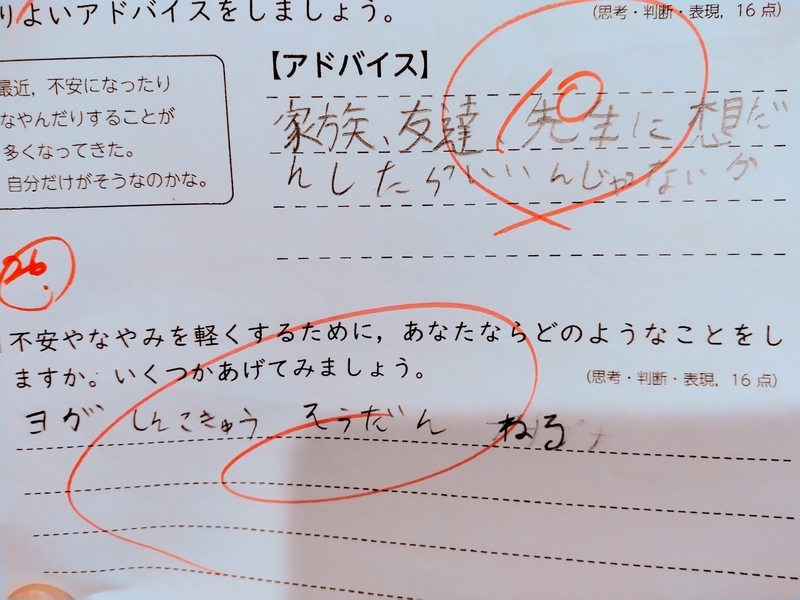 りよいアドバイスをしましょう。
(思考・判断・表現, 16点)
最近，不安になったり
なやんだりすることが
多くなってきた。
自分だけがそうなのかな。
【アドバイス】
10
家族、友達、先生に想だ
んしたらいいんじゃないか
26
不安やなやみを軽くするために，あなたならどのようなことをし
ますか。いくつかあげてみましょう。
(思考・判断・表現, 16点)
ヨガ しんこきゅう そうだん ねる